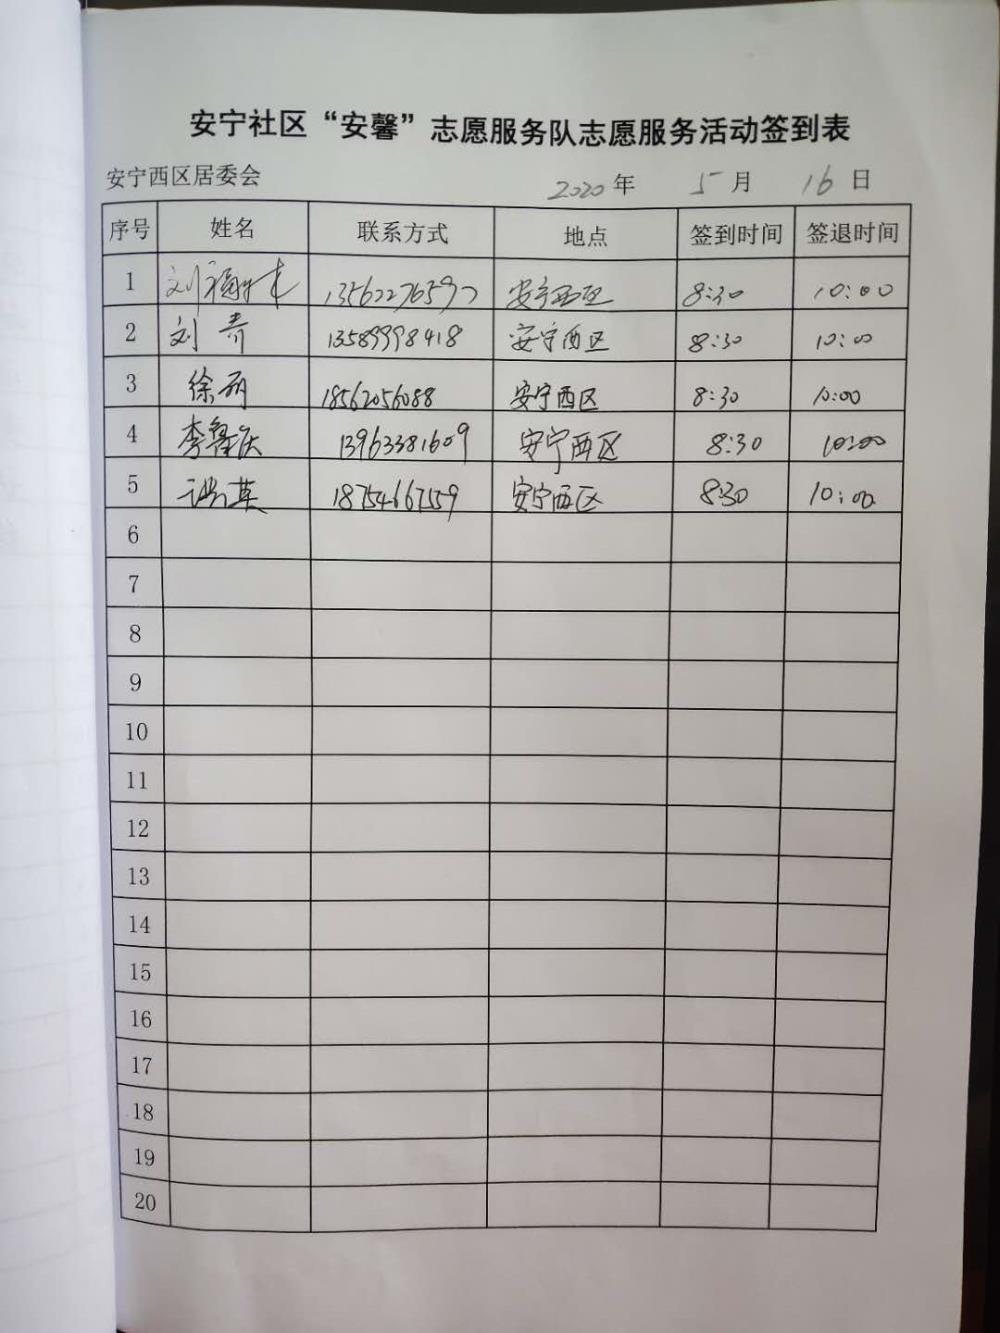 安宁社区“安馨”志愿服务队志愿服务活动签到表
安宁西区居委会 2020年 5月 16日
序号 姓名 联系方式 地点 签到时间 签退时间
1 刘 安宁西区 8:30 10:00
2 刘青 13589998418 安宁西区 8:30 10:00
3 徐丽 18562056088 安宁西区 8:30 10:00
4 李鲁庆 13963381609 安宁西区 8:30 10:00
5 英 安宁西区 8:30 10:00
6
7
8
9
10
11
12
13
14
15
16
17
18
19
20